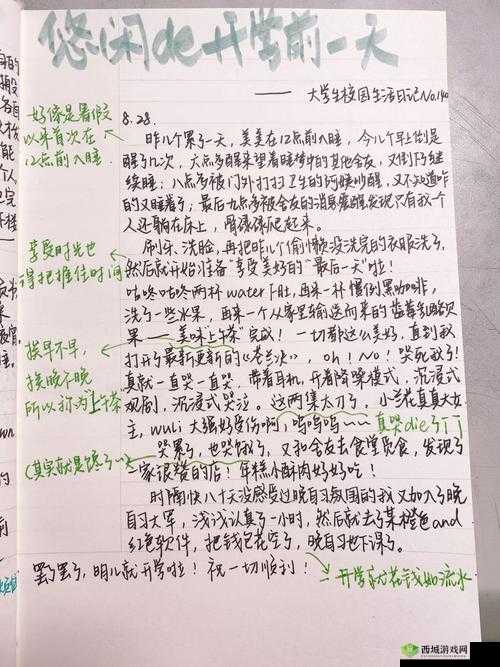 悠闲de开学前一天
—— 大学生校园生活日记No.140
8.28.
好像是暑假
以来首次在
12点前入睡。
昨儿个累了一天，美美在12点前入睡，今儿个早倒是
醒了几次，六点多醒来望着睡梦中的其他舍友，又倒仍继
续睡；八点多被门外打扫卫生的阿姨吵醒，又不知道咋
的又睡着了；最后九点多被舍友的消息震醒，发现只有我一个
人还躺在床上，骨碌碌爬起来。
享受时光也
得把握住时间
刷牙、洗脸，再把昨儿个偷懒没洗完的衣服洗了，
然后就开始准备“享受美好的“最后一天”啦！
咕咚咕咚两杯water下肚，再来一杯惯例黑咖啡，
洗了一些水果，再来一个从家里输送而来的蓝莓乳酪欧
果——美味上午茶 完成！一切都这么美好，直到我
打开了最新更新的《苍兰诀》，oh！No！哭死我了！
挨早不早，
挨晚不晚
所以称为“上午茶”
真就一直哭一直哭，带着耳机，开着降噪模式，沉浸式
观剧，沉浸式哭泣。这两集太刀了，小兰花真真大女
主，wuli 大强好受伤啊，呜呜呜~~~ 真哭die了丁丁
(其实就是馋了…)
哭累了，也哭饿了，又和舍友去食堂觅食，发现了
一家很赞的店！年糕小酥肉好好吃！
时隔快八十天没感受过晚自习氛围的我又加入了晚
自习大军，浅浅认真了一小时，然后就去了某橙色and
红色软件，把钱包花空了，晚自习也下课了。
罢了罢了，明儿就开学啦！祝一切顺利！
开学就花钱如流水
西城游戏网